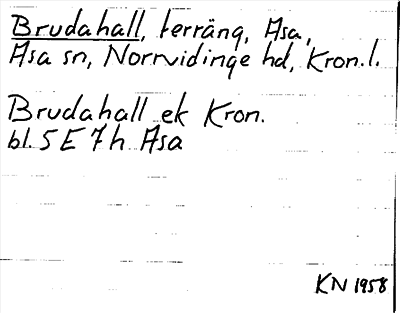 Brudahall, terräng, Asa,
Asa sn, Norrvidinge hd, Kron.l.
Brudahall ek Kron.
bl. 5 E 7 h Asa
KN 1958